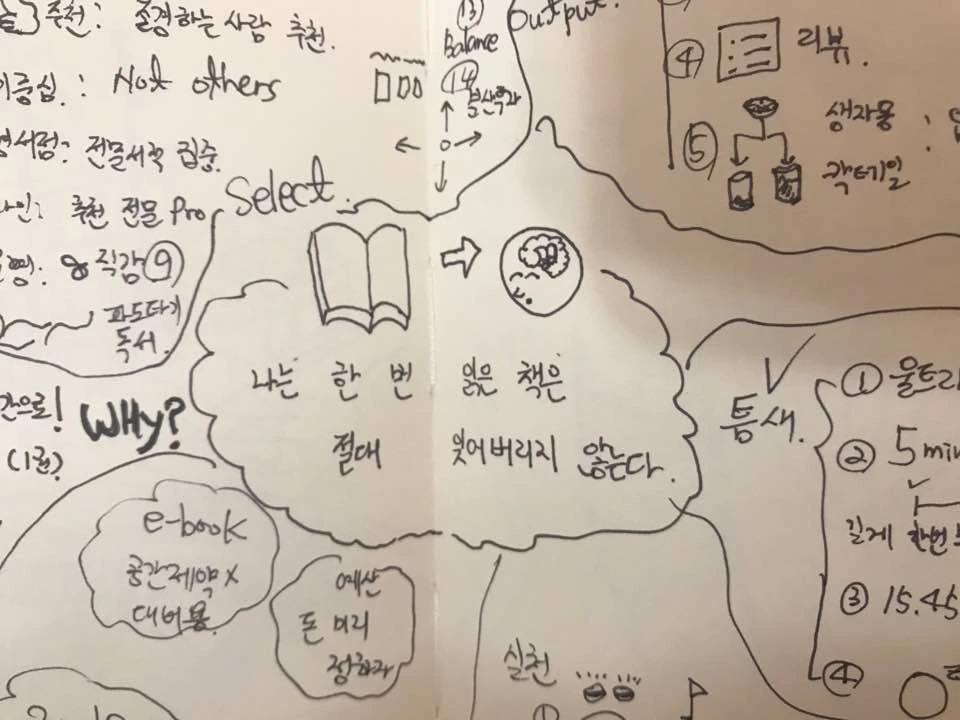 추천: 존경하는 사람 추천.
중심: Not others
서점: 전문서적 집중.
추천 전문 Pro
& 직감 ⑨
파도타기
독서.
Select.
⑬
Balance
⑭
분산투자
output.
④ 리뷰.
⑤ 생자용 :
칵테일
나는 한 번 읽은 책은
절대 잊어버리지 않는다.
간으로!
(1권)
WHY?
e-book
공간제약 X
대비용.
예산
돈 미리
정하자
틈새.
① 울트라
② 5 min
길게 한번
③ 15.45
④
실천